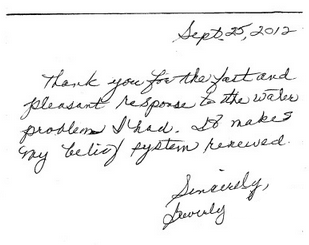 Sept. 25, 2012
Thank you for the fast and
pleasant response to the water
problem I had. It makes
my belief system renewed.
Sincerely,
Beverly